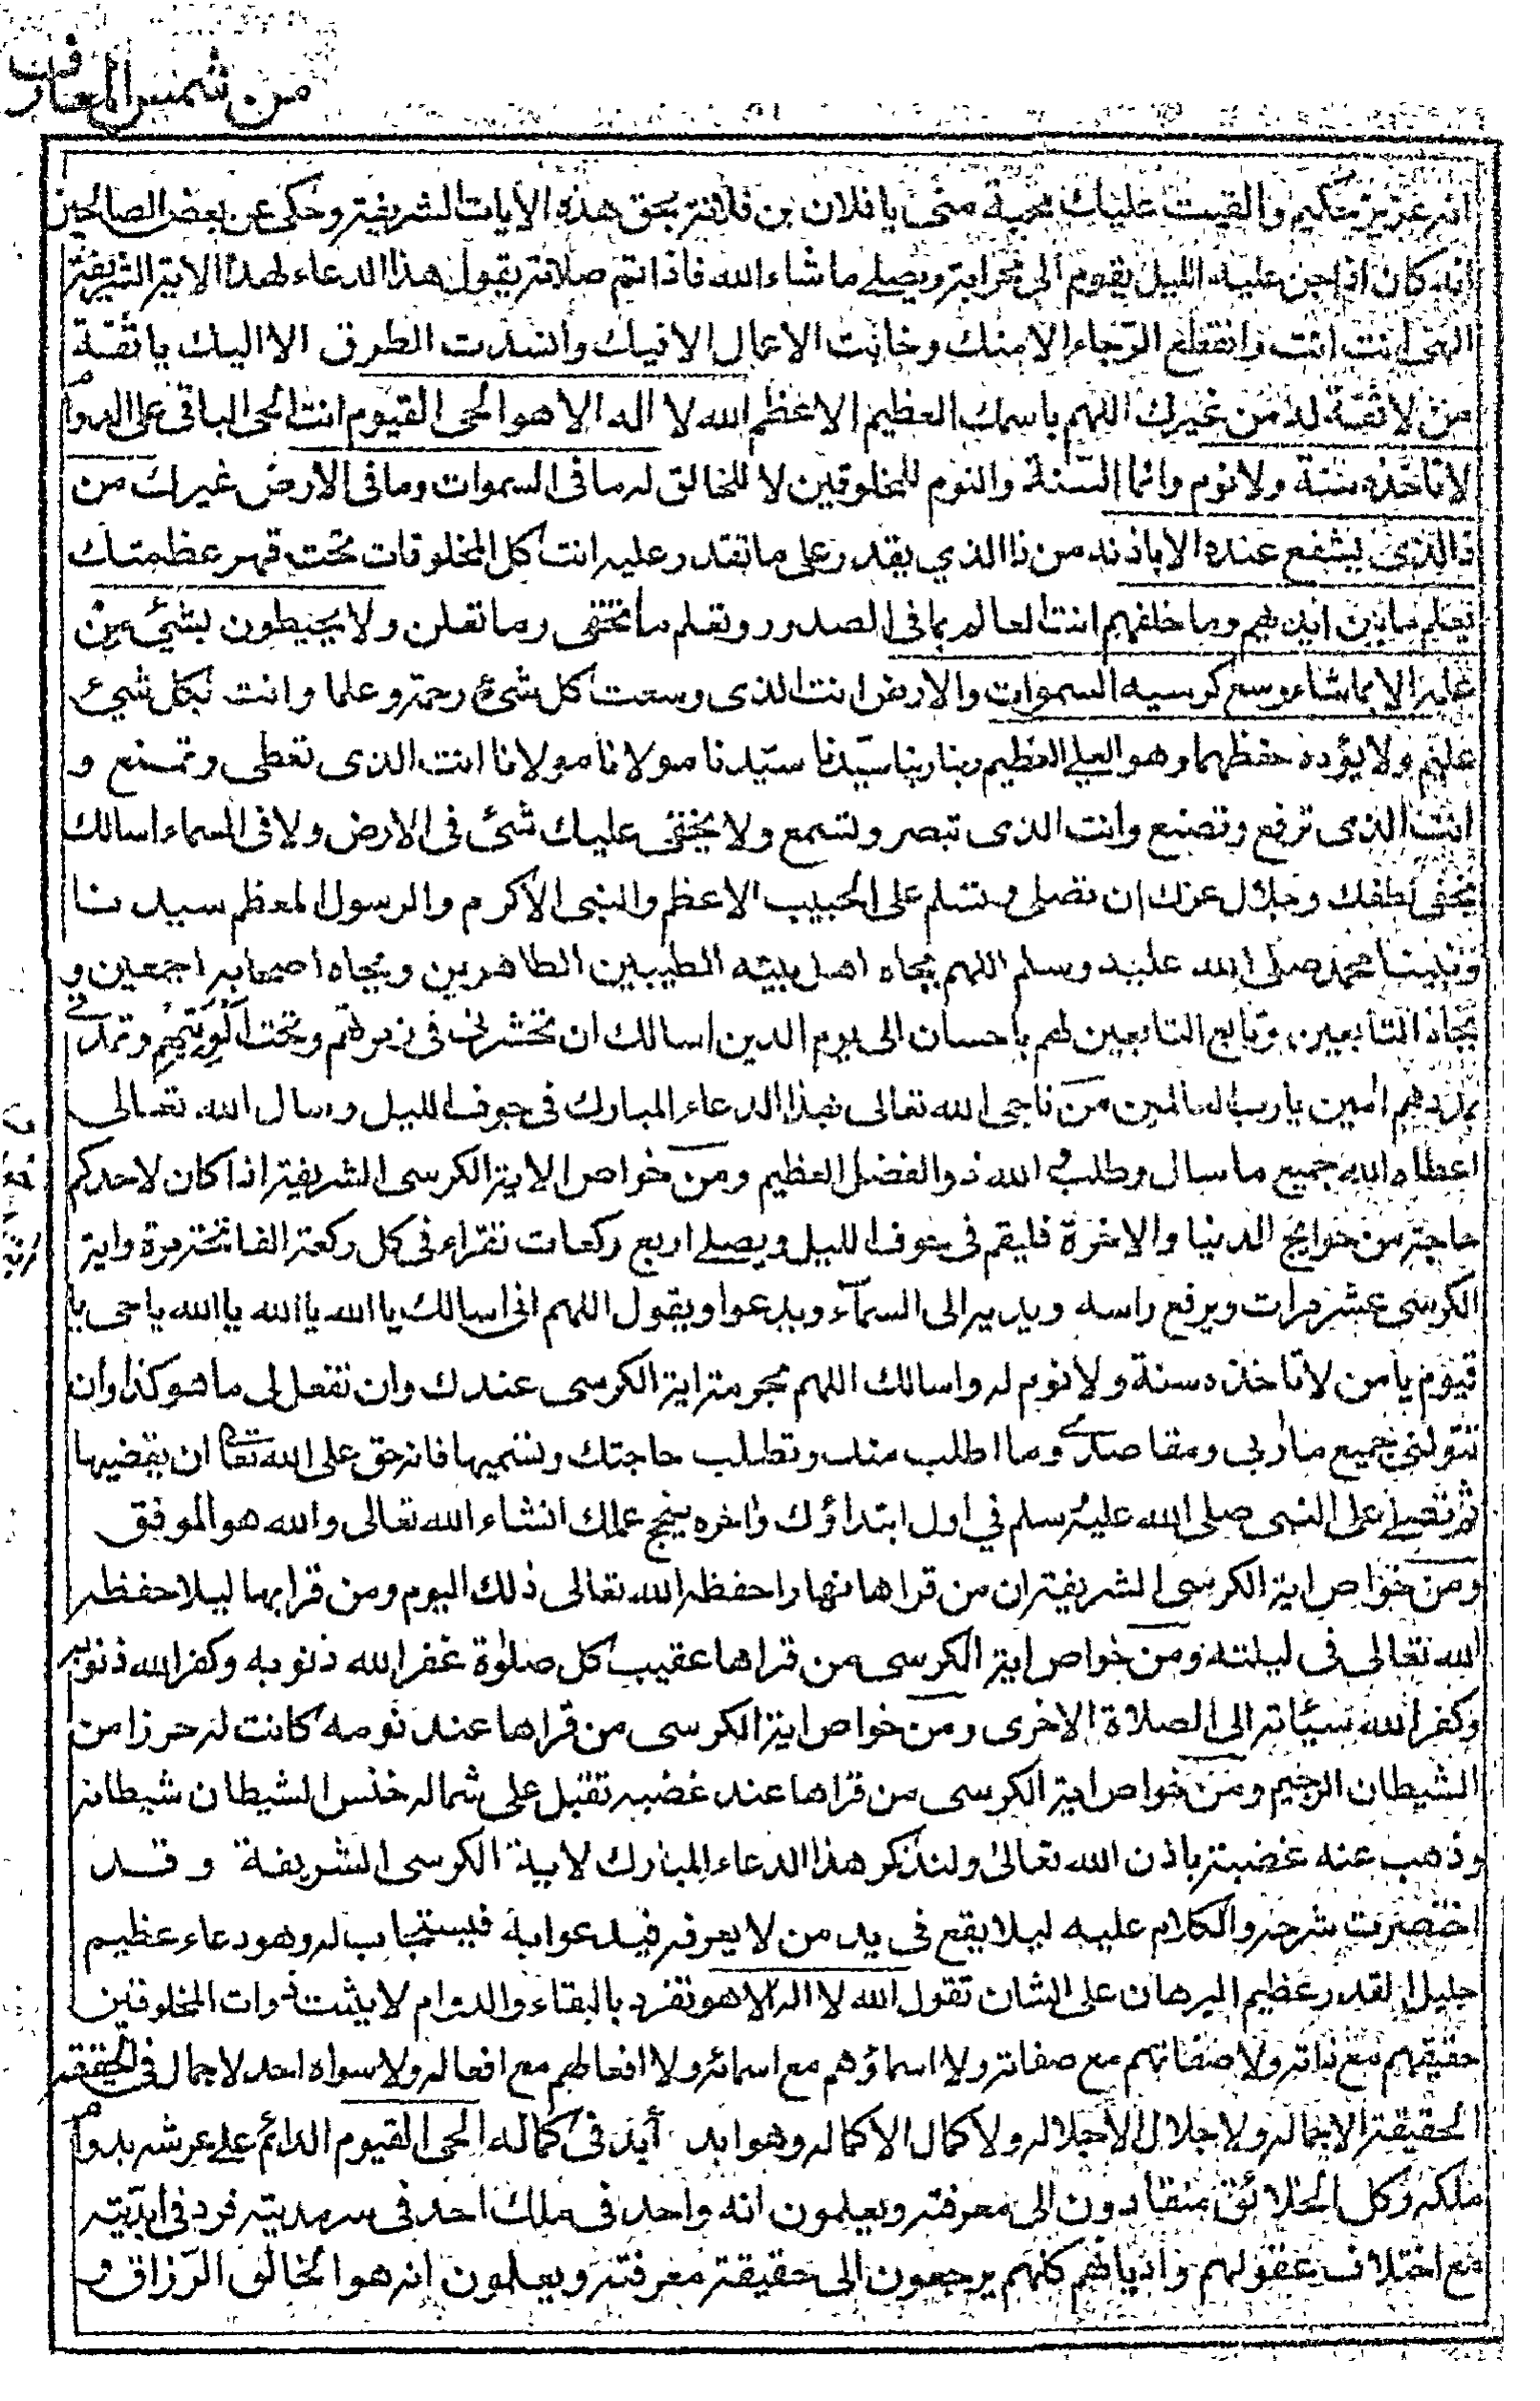 من شمس المعارف
انه عزيز حكيم والقيت عليك محبة منى يا فلان بن فلانة بحق هذه الايات الشريفة وحكى عن بعض الصالحين
انه كان اذا جن عليه الليل يقوم الى محرابه ويصلى ما شاء الله فاذا تم صلاته يقول هذا الدعاء لهذا الاية الشريفة
الهى انت انت وانقطع الرّجاء الا منك وخابت الاعمال الا فيك وانسدت الطرق الا اليك يا ثقـة
من لا ثقـة له من غيرك اللهم باسمك العظيم الاعظم الله لا اله الا هو الحى القيوم انت الحى الباقى على الدوام
لا تاخذه سنة ولا نوم وانما السّنة والنوم للمخلوقين لا للخالق له ما فى السموات وما فى الارض غيرك من
ذا الذى يشفع عنده الا باذنه من ذا الذي يقدر على ما تقدر عليه انت كل المخلوقات تحت قهر عظمتك
يعلم ما بين ايديهم وما خلفهم انت العالم بما فى الصدور وتعلم ما نخفى وما نعلن ولا يحيطون بشئ من
علمه الا بما شاء وسع كرسيه السموات والارض انت الذى وسعت كل شئ رحمة وعلما وانت بكل شئ
عليم ولا يؤده حفظهما وهو العلى العظيم ربنا ربنا سيّدنا سيّدنا مولانا مولانا انت الذى تعطى وتمنع و
انت الذى ترفع وتضع وانت الذى تبصر وتسمع ولا يخفى عليك شئ فى الارض ولا فى السماء اسالك
بخفى لطفك وجلال عزك ان تصلى وتسلم على الحبيب الاعظم والنبى الاكرم والرسول المعظم سيدنا
ونبينا محمد صلى الله عليه وسلم اللهم بجاه اهل بيته الطيبين الطاهرين وبجاه اصحابه اجمعين و
بجاه التابعين وتابع التابعين لهم باحسان الى يوم الدين اسالك ان تحشرنى فى زمرتهم وتحت الويتهم وتمدنى
بمددهم امين يا رب العالمين من ناجى الله تعالى بهذا الدعاء المبارك فى جوف الليل وسال الله تعالى
اعطاه الله جميع ما سال وطلب الله ذو الفضل العظيم ومن خواص الاية الكرسى الشريفة اذا كان لاحدكم
حاجة من حوايج الدنيا والاخرة فليقم فى جوف الليل ويصلى اربع ركعات تقراء فى كل ركعة الفاتحة مرة واية
الكرسى عشر مرات ويرفع راسه ويديه الى السمآء ويدعوا ويقول اللهم انى اسالك يا الله يا الله يا الله يا حى يا
قيوم يا من لا تاخذه سنة ولا نوم له واسالك اللهم بحرمة اية الكرسى عندك وان تفعل لى ما هو كذا وان
تتولنى جميع مأربى ومقاصدى وما اطلب منك وتطلب حاجتك وتسميها فانه حق على الله تعا ان يقضيها
ثم تصلى على النبى صلى الله عليه وسلم في اول ابتداؤك واخره ينجح عملك انشاء الله تعالى والله هو الموفق
ومن خواص اية الكرسى الشريفة ان من قراها نهارا حفظه الله تعالى ذلك اليوم ومن قرا بها ليلا حفظه
الله تعالى فى ليلته ومن خواص اية الكرسى من قراها عقيب كل صلوة غفر الله ذنوبه وكفر الله ذنوبه
وكفر الله سيئاته الى الصلاة الاخرى ومن خواص اية الكرسى من قراها عند نومه كانت له حرزا من
الشيطان الرجيم ومن خواص اية الكرسى من قراها عند غضبه تقبل على شماله خنس الشيطان شيطانه
وذهب عنه غضبته باذن الله تعالى ولنذكر هذا الدعاء المبارك لاية الكرسى الشريفة وقد
اختصرت شرحه والكلام عليه ليلا يقع فى يد من لا يعرفه فيدعوا به فيستجاب له وهو دعاء عظيم
جليل القدر عظيم البرهان على الشان تقول الله لا اله الا هو تفرد بالبقاء والدوام لا يثبت ذوات المخلوقين
حقيقتهم مع ذاته ولا صفاتهم مع صفاته ولا اسماؤهم مع اسمائه ولا افعالهم مع افعاله ولا سواه احد لا جمال فى الحقيقة
الحقيقة الا جماله ولا جلال الا جلاله ولا كمال الا كماله وهو ابد أيد فى كماله الحى القيوم الدائم على عرشه بدوام
ملكه وكل الخلائق منقادون الى معرفته ويعلمون انه واحد فى ملك احد فى سرمديته فرد فى ابديّته
مع اختلاف عقولهم واديانهم كلهم يرجعون الى حقيقة معرفته ويعلمون انه هو الخالق الرّزاق و